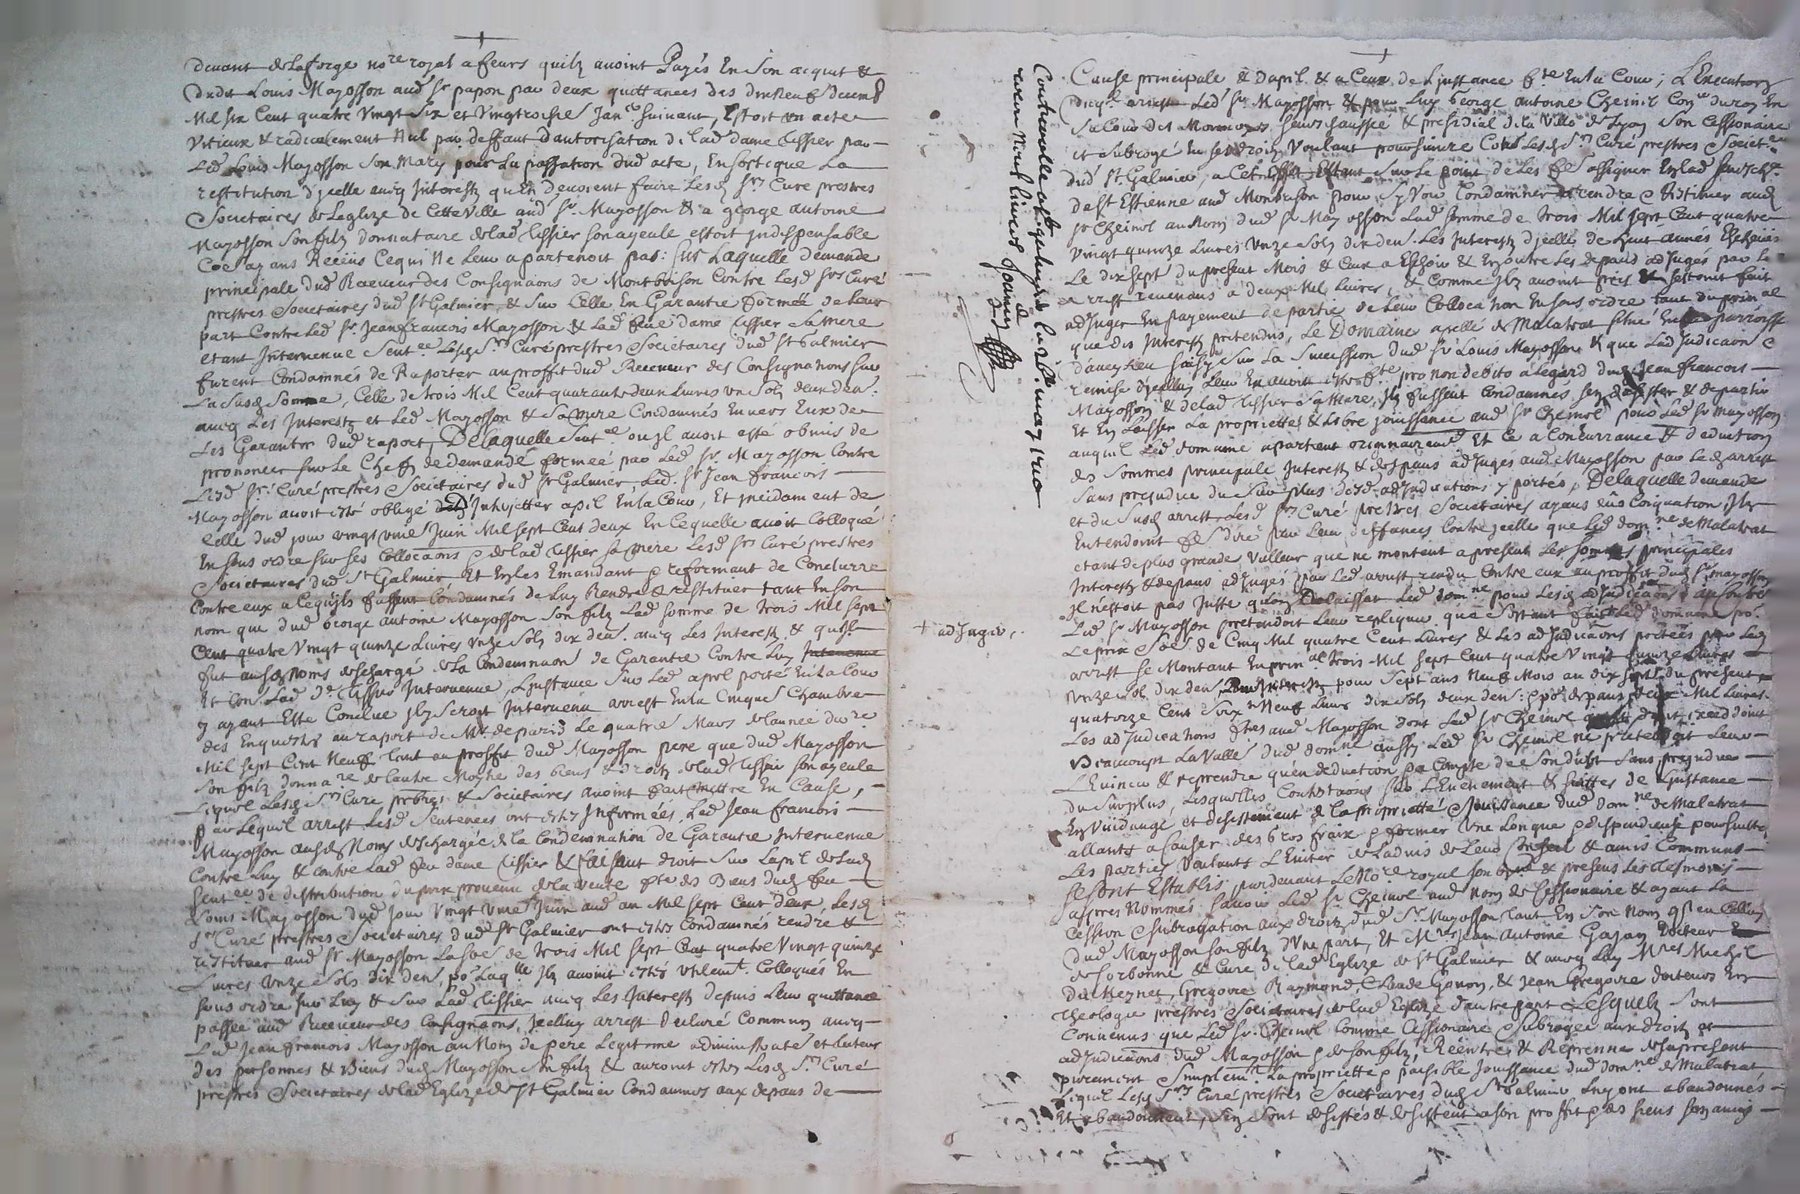 devant de Laforge no.re royal a feurs quilz avoint Payés En Son acquit &
dudit Louis Mayosson aud. Sr papon par deux quittances des dixneuf decemb
Mil Six Cent quatre Vingt Six et Vingtroisie Janv. Suivant, Estoit un acte
Vitieux & radicalement Nul par deffaut dautorisation de lad. dame tissier par
Led. Louis Mayosson Son mary pour La passation dud. acte, En sorte que La
restitution dicelle avec Interestz quEn devoient faire Lesd. Srs Curé prestres
Societaires de Leglize de Cette Ville aud. Sr. Mayosson & a george antoine
Mayosson Son filz donnataire de lad. tissier Son ayeule estoit Indispensable
Ces ayans Receus Ce qui Ne Leur apartenoit pas: Sur Laquelle demande
principale dud. Receveur des Consignaons de Montbrison Contre Lesd. Srs Curé
prestres Societaires dud. St Galmier, & Sur Celle En Garantie formée de Leur
part Contre Led. Sr. Jean francois Mayosson & Lad. feue dame tissier Sa Mere
etant Intervenue Sentce Lesd. Srs Curé prestres Societaires dud. St Galmier
furent Condamnés de Raporter au proffit dud. Receveur des Consignations Sur
La Susd. Somme, Celle de trois Mil Cent quarante deux Livres un Solz deux den.
avec Les Interestz et Led. Mayosson & Sa Mere Condamnés Envers Eux de
Les Garantir dud. raport, De laquelle Sentce ou Il avoit esté obmis de
prononcer Sur Le Chefz de demande formeé par Led. Sr. Mayosson Contre
Lesd. Srs. Curé prestres Societaires dud. St Galmier, Led. Sr Jean francois
Mayosson avoit été obligé d'Interjetter apel En la Cour, Et Incidament de
Celle dud. jour Vingt unie Juin Mil Sept Cent deux En Lequelle avoit Colloqué
En Sous ordre Sur Ses Collocaons & de lad. tissier Sa Mere Lesd. Srs Curé prestres
Societaires dud. St Galmier Et En les Emandant & reformant de Conclurre
Contre eux a Ce quilz fussent Condamnés de Luy Rendre & restituer tant En Son
nom que dud. George antoine Mayosson Son filz Lad. Somme de trois Mil Sept
Cent quatre Vingt quinze Livres Unze Solz dix den. avec Les Interestz & quil
fut ausd. Noms deschargé de La Condemnaon de Garantie Contre Luy Intervenue
Et Con. Lad. De. tissier Intervenue, L'Instance Sur Led. apel porté En la Cour
y ayant Este Conclue Il y Seroit Intervenu arrest En la Cinqe. Chambre
des Enquestes au raport de Mr. de paris Le quatrie Mars de lannée derre
Mil Sept Cent Neuf, tant au proffit dud. Mayosson pere que dud. Mayosson
Son filz donnare de lautre Moytié des biens & droitz de lad. tissier Son ayeule
Lequel Lesd. Srs Curé prebres & Societaires avoint fait mettre En Cause,
par Lequel arrest Lesd. Sentences ont estés Infirmées, Led. Jean francois
Mayosson ausd. Noms deschargéé de la Condemnation de Garantie Intervenue
Contre Luy & Contre Lad. feu dame tissier & faisant droit Sur Lapel de Lad.
Sentce de distribution du prix provenu de la Vente fte des Biens dud. feu
Louis Mayosson dud. jour Vingt unie Juin aud. an Mil Sept Cent deux, Lesd.
Srs Curé prestres Societaires dud. St Galmier ont estés Condamnés rendre &
restituer aud. Sr Mayosson La Soe de trois Mil Sept Cent quatre Vingt quinze
Livres Unze Sols Dix den. po. Laqlle Ilz avoint estés Utilemt. Colloqués En
Sous ordre Sur Luy & Sur Lad. tissier avec Les Interestz depuis Leur quittance
passée aud. Receveur des Consignaons, Icelluy arrest Declaré Commun avec
Led. Jean francois Mayosson au Nom de pere Legitime administrate et tuteur
des personnes & Biens dud. Mayosson Son filz & auroint estés Lesd. Srs Curé
prestres Societaires de lad. Eglize de St Galmier Condamnés aux depans de
Controllé a St galmier le 28e. may 1710
receu neuf livres
+ adJuger,
Cause principale & Dapel & a Ceux de Linstance fte En la Cour; L'Execution
duql. arrest Led. Sr Mayosson & pour Luy George antoine Cheinel Conr. du roy En
Sa Cour des Monnoyes Senechaussée & presidial de la Ville de Lyon Son Cessionaire
et Subrogé En Ses droitz Voulant poursuivre Contre Lesd. Srs Curé prestres Societ.
dud. St. Galmier, a Cet effet Estant Sur Le point de Les fe assigner En lad. Senechée
de St Estienne aud. Montbrison pour Sy Voir Condamner de rendre & Restituer aud.
Sr Cheinel au Nom dud. Sr Mayosson Lad. Somme de trois Mil Sept Cent quatre
Vingt quinze Livres Unze Solz dix den. Les Interestz dicelle de huit années Escheües
Le dix Sept du present Mois & Ceux a Eschoir & En outre Les depans adJugés par Le
arrest revenans a deux Mil Livres, & Comme Ilz avoint pris & Sestoint fait
adJuger En payement de partie de Leur Collocation En Sous ordre tant du prinal
que des Interestz pretendus, Le Domaine apellé de Malatrat Situé En la parroisse
Daveizieu Saisy Sur La Succession dud. Sr Louis Mayosson & que Lad. Judicaon &
remise dicelluy Leur En avoit Esté fte pro non debito a legard dud. Jean francois
Mayosson & de lad. tissier Sa Mere, Ilz fussent Condamnés Sen desister & departir
Et En Laisser La proprieté & Libre Jouissance aud. Sr Cheinel pour Led. Sr Mayosson
auquel Led. domaine apartient originairemt. Et Ce a Concurrance & deduction
des Sommes principale Interestz & despans adJugés aud. Mayosson par Led. arrest
Sans prejudice du Surplus desd. adJudications y portés, De laquelle demande
et du Susd. arrest Lesd. Srs Curé prestres Societaires ayans eüs Conication Ilz
Entendoint fe dire par Leur deffances Contre Icelle que Led. domne de Malatrat
etant de plus grande Valleur que ne montent a present Les Sommes principales
Interestz & depans adJugés par Led. arrest rendu Contre eux au proffit dud. Sr Mayosson
Il n'estoit pas Juste quilz Delaissat Led. domne pour Lesd. adJudicaons
Led. Sr Mayosson pretandoit Leur repliquer que
Le prix Soe. de Cinq Mil quatre Cent Livres & Les adJudicaons portées par Led.
arrest Se Montant En prinal trois Mil Sept Cent quatre Vingt quinze Livres
Unze Sol. dix den. pour Sept ans Neuf Mois au dix Sept. du present
quatorze Cent Soixte Neuf Livres dix Solz deux den: & po. depans deux Mil Livres
Les adJudications ftes aud. Mayosson dont Led. Sr Cheinel a droit Excedoint
Beaucoup La Valleur dud. domne aussy Led. Sr Cheinel ne pretendoit Leur
L'Evincer & reprendre quEn deduction & a Compte de Son dubt Sans prejudice
du Surplus, Lesquelles Contestaons Sur L'Evenement & Suittes de L'Instance
En Vuidange et desistement de La proprieté & Jouissance dud. domne de Malatrat
allants a Causer des Gros fraix & former Une Longue & dispendieuse poursuitte,
Les parties Voulants L'Eviter de Ladvis de Leur Conseil & amis Communs
Se Sont Establis pardevant Le Nore royal Sousigné & presens Les tesmoins
apres Nommés; Scavoir Led. Sr. Cheinel aud. nom de Cessionaire & ayant La
Cession & Subrogation aux droitz dud. Sr Mayosson tant En Son Nom qu'en Celluy
dud. Mayosson Son filz d'Une part, Et Mre Jean Antoine Gayan docteur
de Sorbonne & Curé de lad. Eglize de St Galmier & avec Luy Mres Michel
Du Meynet, Gregoire Raymond, Claude Gonon, & Jean Gregoire docteurs En
theologie prestres Societaires de lad. Eglize dautre part Lesquelz Sont
Convenus que Led. Sr. Cheinel Comme Cessionaire Subrogé aux droitz et
adJudicaons dud. Mayosson & de Son filz, Réentre, & Reprenne des a present
purement & Simplemt. La proprieté & paisible Jouissance dud. domne de Malatrat
Lequel Lesd. Srs Curé prestres Societaires dud. St Galmier Luy ont abandonnés
Et abandonnent, Sen Sont desistés & desistent a Son proffit & des Siens Sesd. amis